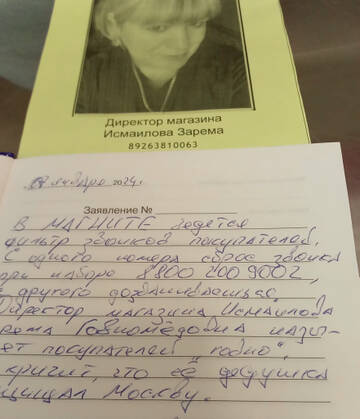 Директор магазина
Исмаилова Зарема
89263810063
января 2024г.
Заявление №
В МАГНИТЕ ведется
фильтр звонков покупателей.
С одного номера сброс звонка
при наборе 8 800 200 9002,
с другого дозваниваешься.
Директор магазина Исмаилова
покупателей
кричит, что её дедушка
Москву.